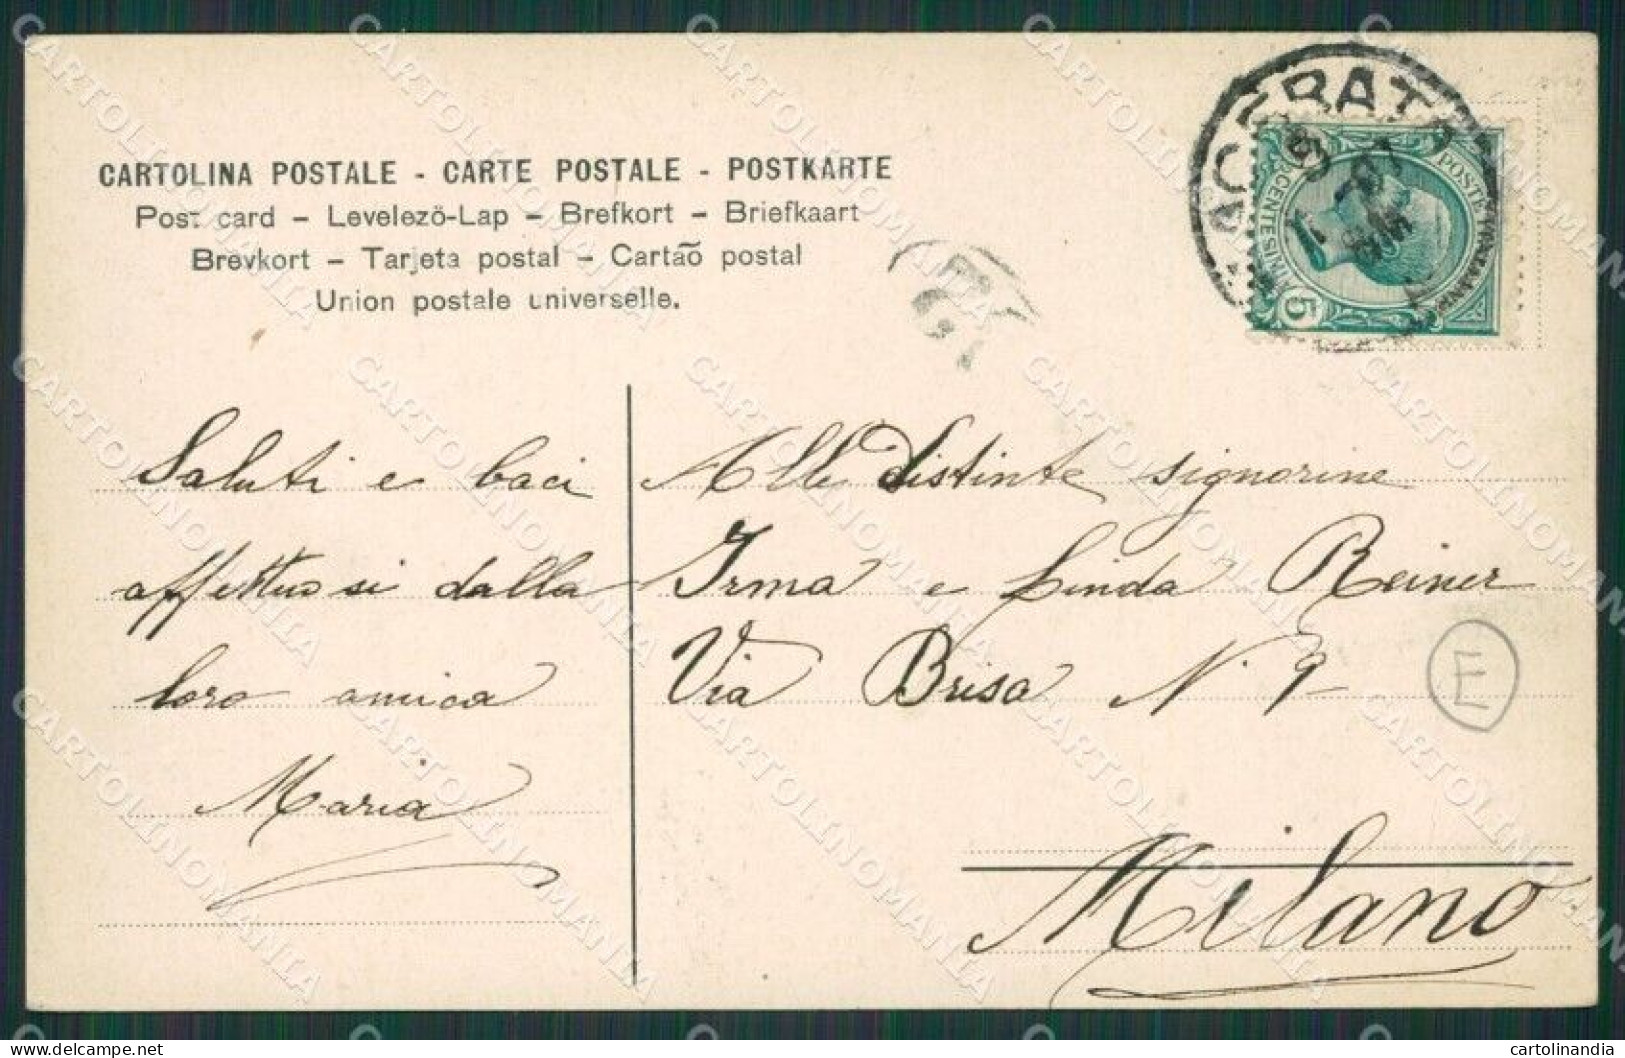 CARTOLINA POSTALE - CARTE POSTALE - POSTKARTE
Post card - Levelezö-Lap - Brefkort - Briefkaart
Brevkort - Tarjeta postal - Cartaõ postal
Union postale universelle.
POSTE ITALIANE
CENTESIMI
5
Saluti e baci
affettuosi dalla
loro amica
Maria
Alle distinte signorine
Irma e Linda Reiner
Via Brisa N. 9
E
Milano
CARTOLINOMANILA
cartolinandia